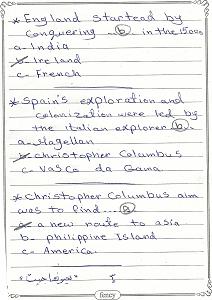 * England startead by
conquering ...b... in the 1500s
a- India
b- Ireland
c- French
* Spain's exploration and
colonization were led by
the italian explorer b.
a- Magellan
b- christopher Columbus
c- Vasco da Gama
* Christopher Columbus aim
was to find...a
a- a new route to asia
b- philippine Island
c- America.
٤
fancy